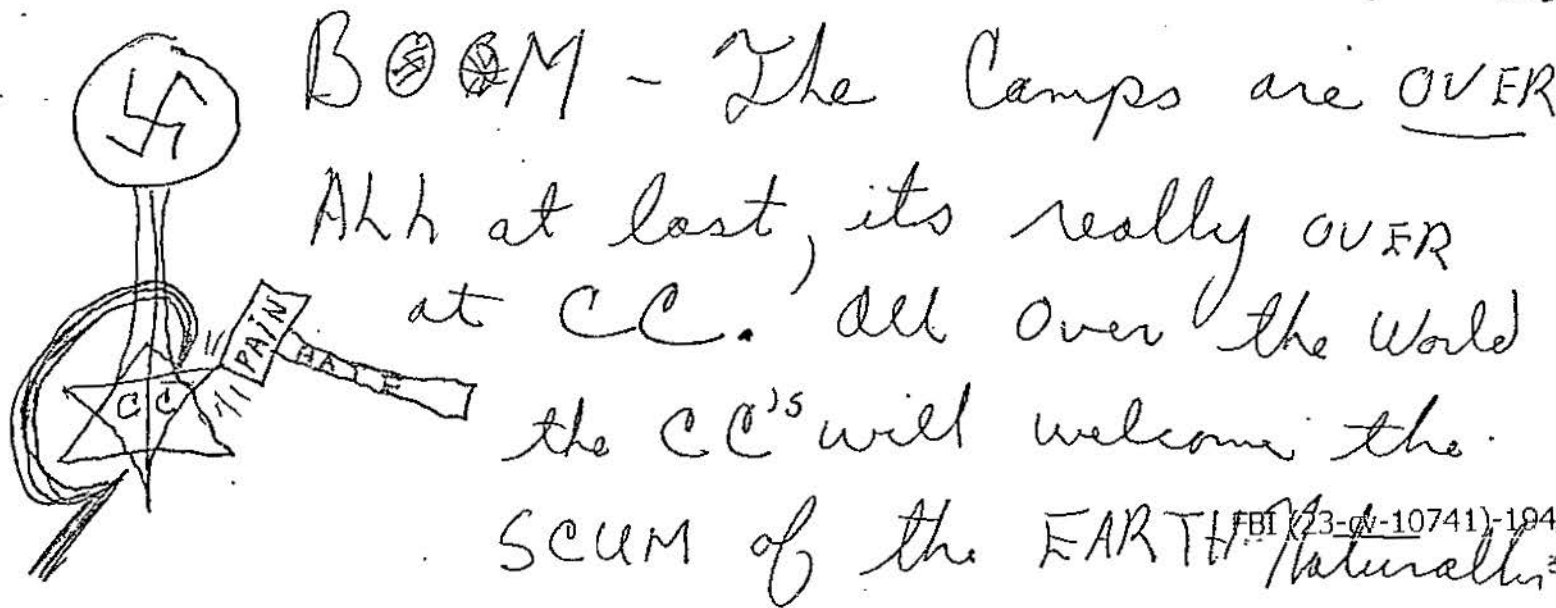 BOOM - The Camps are OVER
ALL at last, its really OVER
at CC. All Over the World
the CC's will welcome the
SCUM of the EARTH Naturally
CC
PAIN
FBI (23-cv-10741)-194